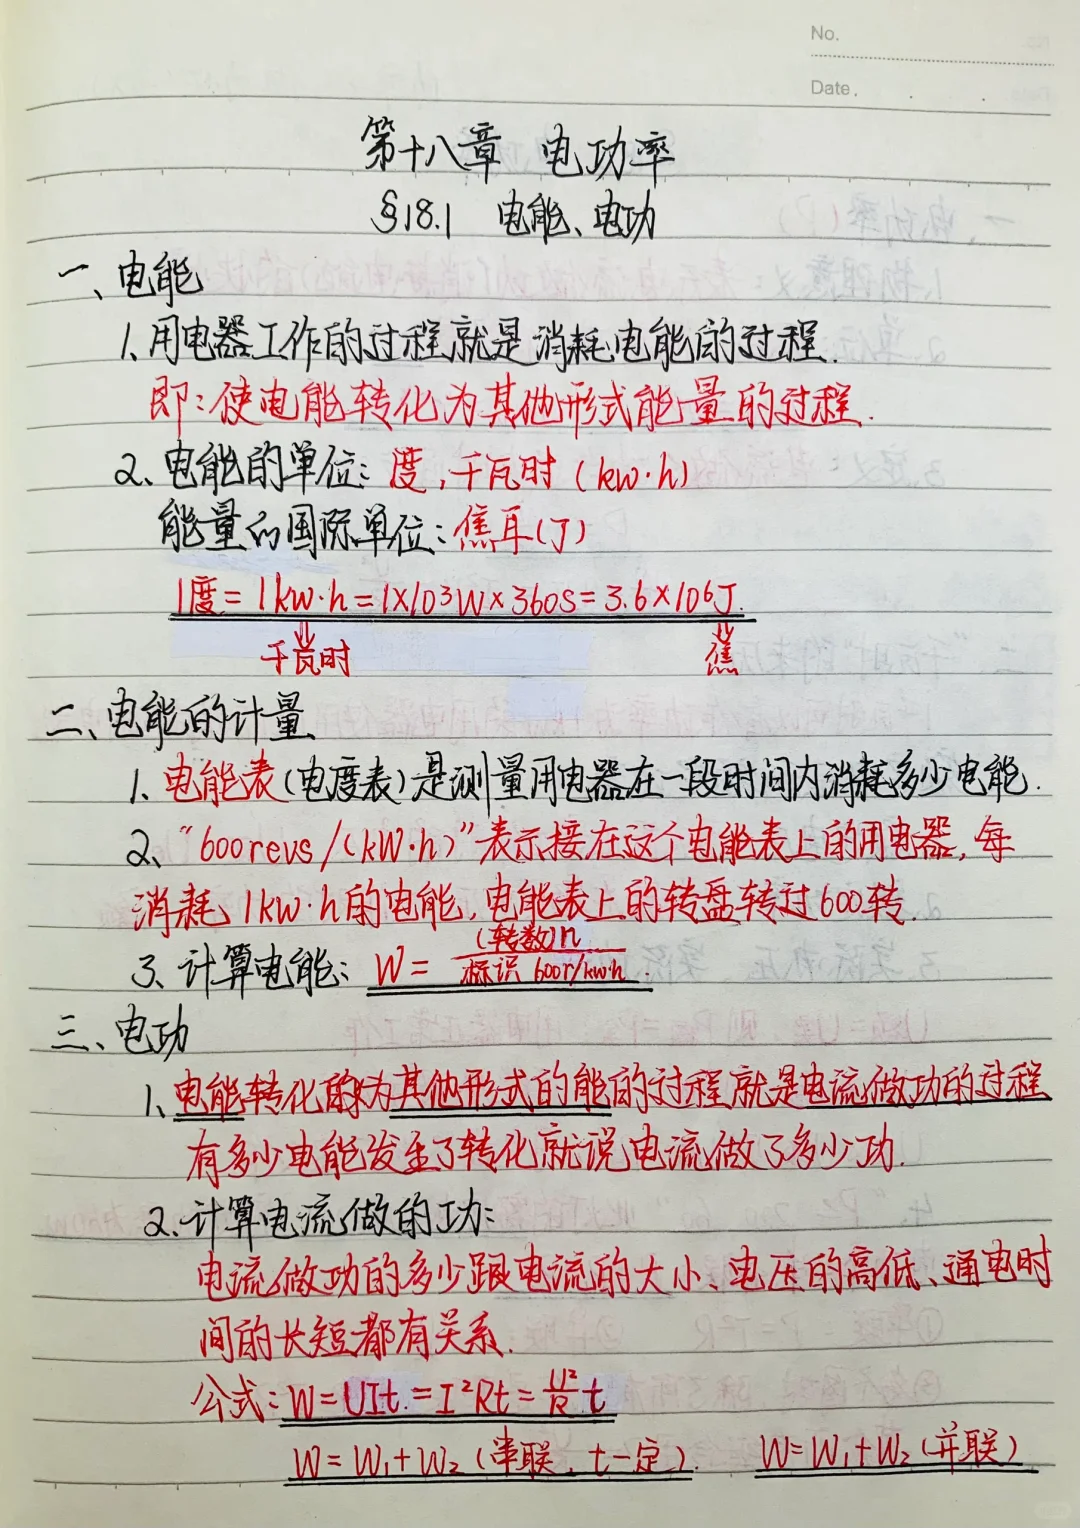 No.
Date.
第十八章 电功率
§18.1 电能、电功
一、电能
1、用电器工作的过程就是消耗电能的过程.
即:使电能转化为其他形式能量的过程.
2、电能的单位:度,千瓦时(kw·h)
能量的国际单位:焦耳(J)
1度=1kw·h=1×10³W×360s=3.6×10⁶J.
千瓦时 焦
二、电能的计量
1、电能表(电度表)是测量用电器在一段时间内消耗多少电能.
2、“600revs/(kW·h)”表示接在这个电能表上的用电器,每
消耗1kw·h的电能,电能表上的转盘转过600转.
3、计算电能:W=(转数)n/标识 600r/kw·h.
三、电功
1、电能转化为其他形式的能的过程就是电流做功的过程
有多少电能发生了转化就说电流做了多少功.
2.计算电流做的功:
电流做功的多少跟电流的大小、电压的高低、通电时
间的长短都有关系.
公式:W=UIt=I²Rt=U²/R t
W=W₁+W₂(串联、t一定) W=W₁+W₂(并联)